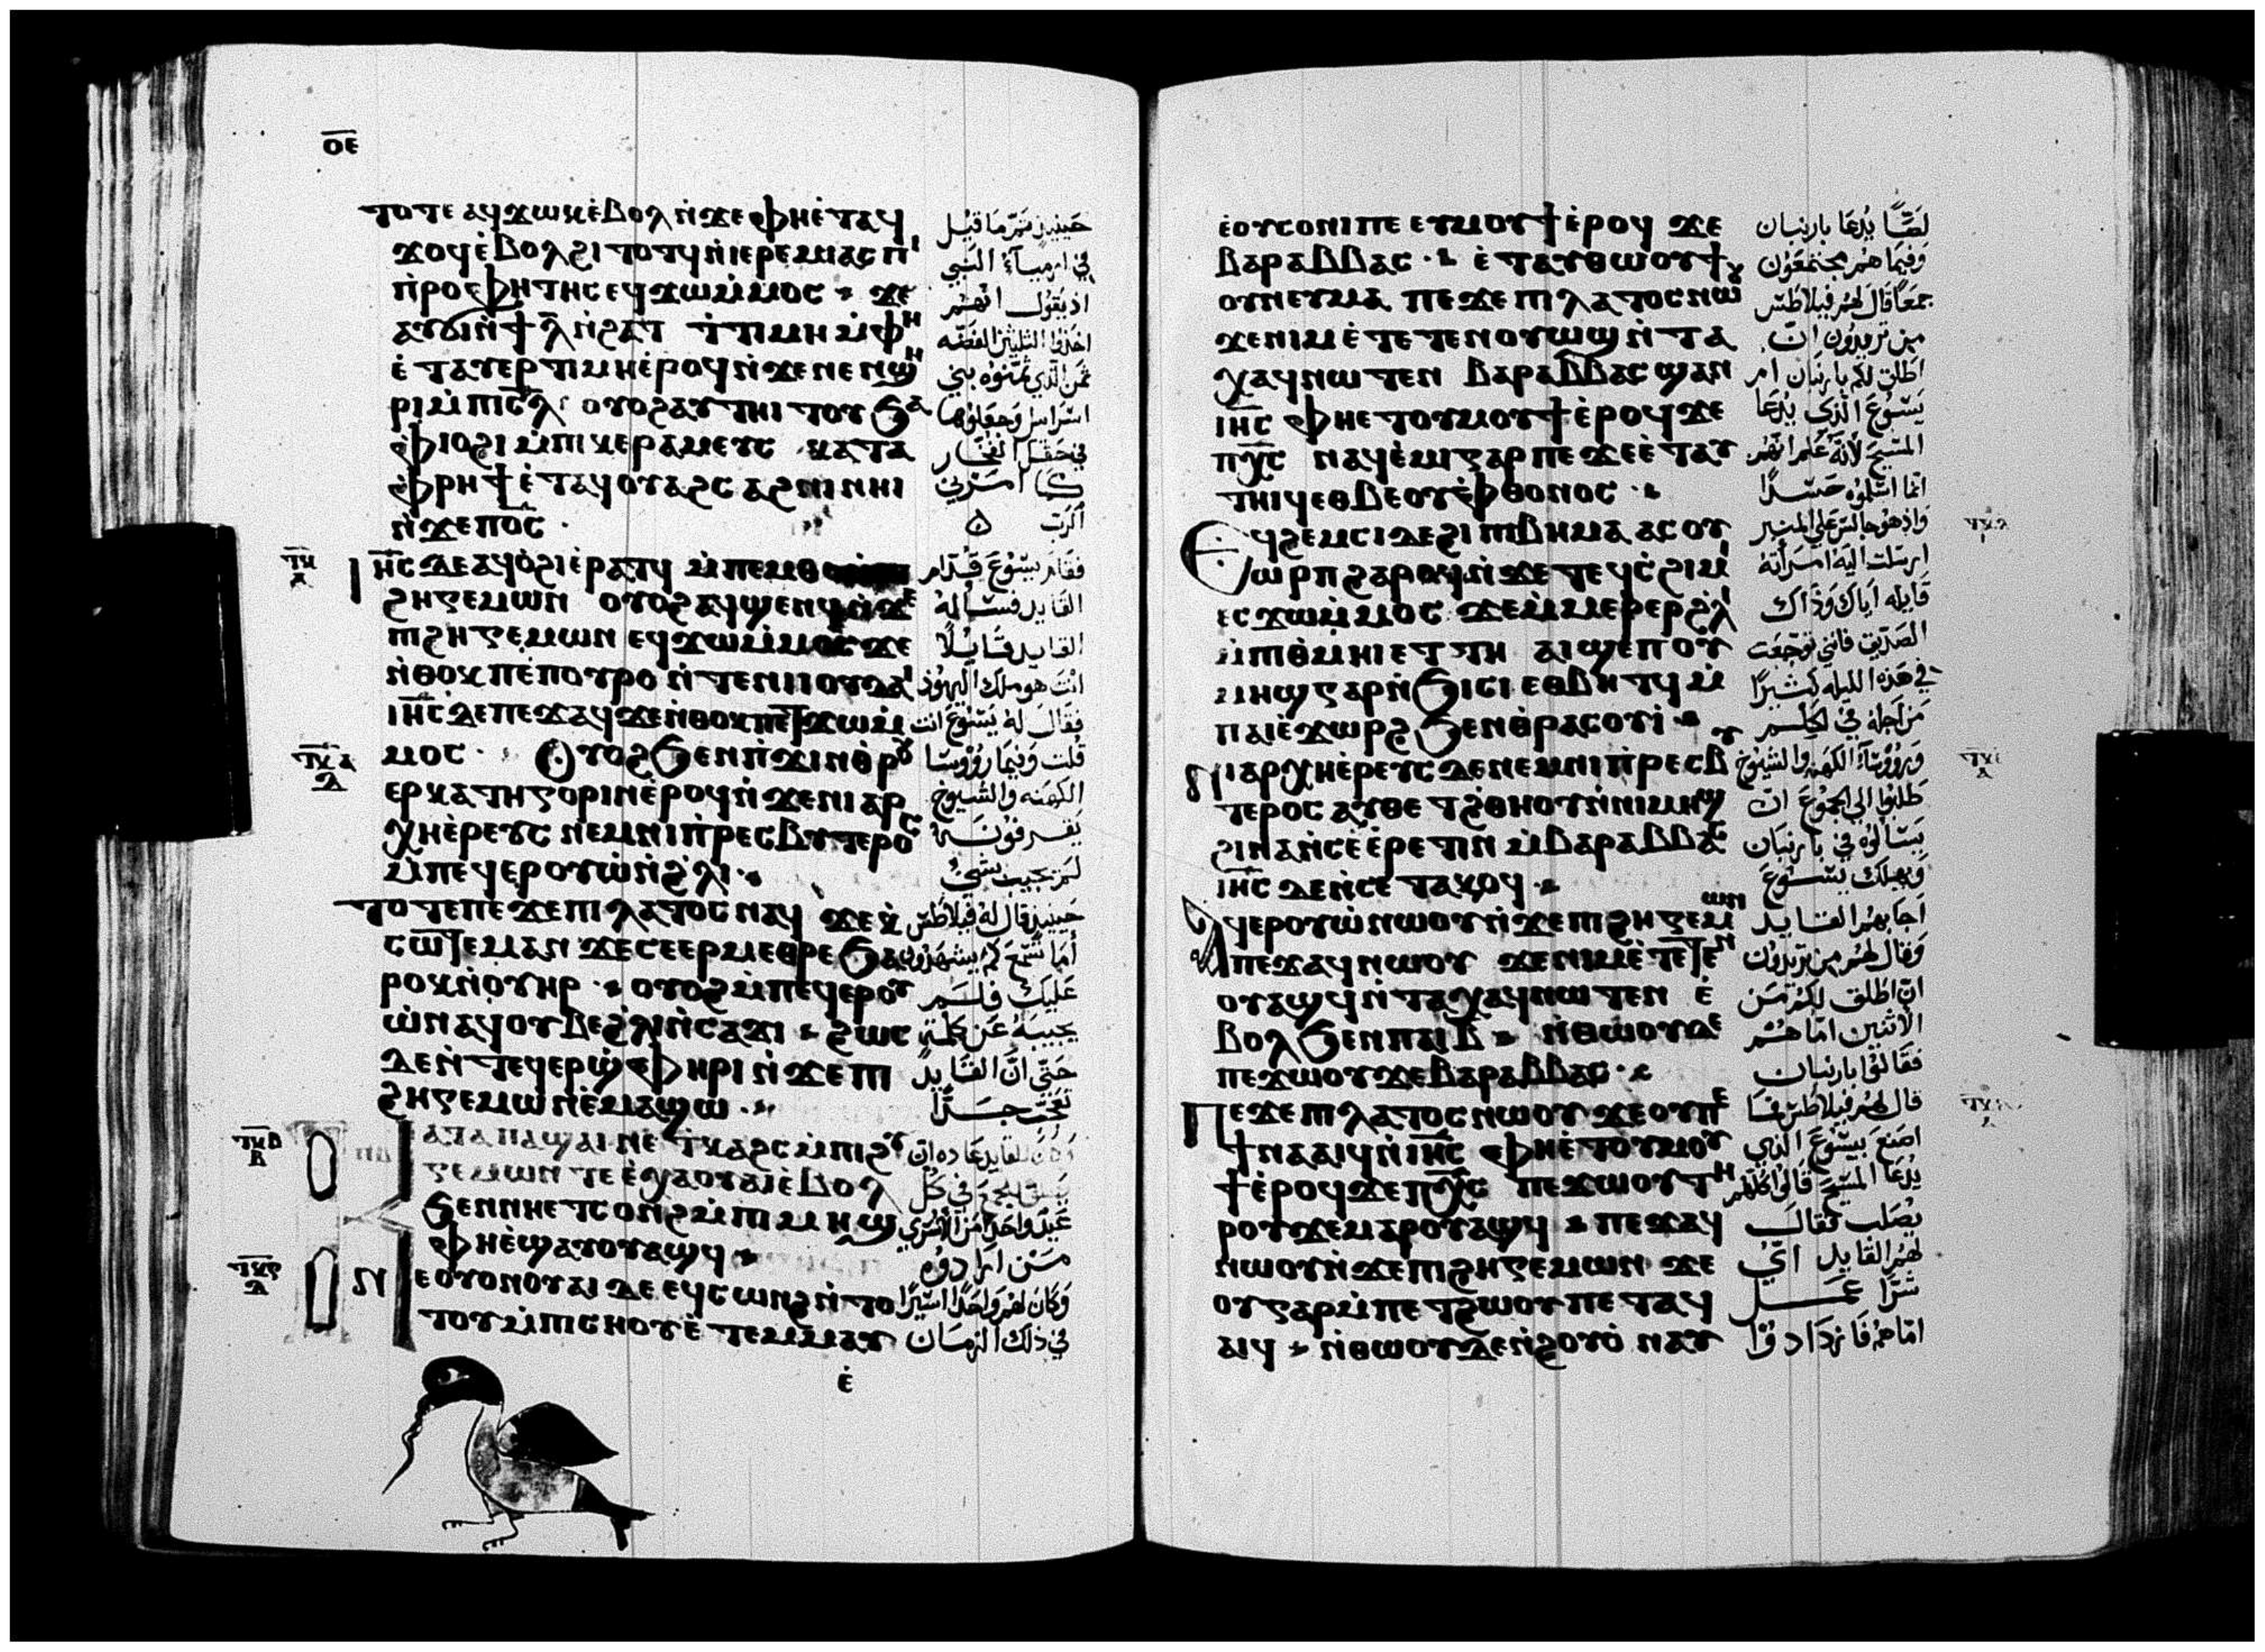 ⲟ̅ⲉ̅
ⲧⲟⲧⲉ ⲁϥϫⲱⲕ ⲉ̀ⲃⲟⲗ ⲛ̀ϫⲉ ⲫⲏⲉ̀ⲧⲁϥ
ϫⲟϥ ⲉ̀ⲃⲟⲗ ϩⲓⲧⲟⲧϥ ⲛ̀ⲓⲉⲣⲉⲙⲓⲁⲥ ⲡⲓ
ⲡ̀ⲣⲟⲫⲏⲧⲏⲥ ⲉϥϫⲱⲙ̀ⲙⲟⲥ ϫⲉ
ⲁⲩϭⲓ ⲛ̀ϯⲗ̅ ⲛ̀ϩⲁⲧ ⲧ̀ⲧⲓⲙⲏ ⲙ̀ⲫⲏ
ⲉ̀ⲧⲁⲩⲉⲣⲧⲓⲙⲏ ⲉ̀ⲣⲟϥ ⲛ̀ϫⲉ ⲛⲉⲛϣⲏ
ⲣⲓ ⲙ̀ⲡⲓⲥ̅ⲗ̅ ⲟⲩⲟϩ ⲁⲩⲧⲏⲓⲧⲟⲩ ϧⲁ
ⲫ̀ⲓⲟϩⲓ ⲙ̀ⲡⲓⲕⲉⲣⲁⲙⲉⲩⲥ ⲕⲁⲧⲁ
ⲫ̀ⲣⲏϯ ⲉ̀ⲧⲁϥⲟⲩⲁϩⲥⲁϩⲛⲓ ⲛⲏⲓ
ⲛ̀ϫⲉ ⲡⲟ̅ⲥ̅
ⲓⲏ̅ⲥ̅ ⲇⲉ ⲁϥⲟ̀ϩⲓ ⲉ̀ⲣⲁⲧϥ ⲙ̀ⲡⲉⲙⲑⲟ
ϩⲏⲅⲉⲙⲱⲛ ⲟⲩⲟϩ ⲁϥϣⲉⲛϥ ⲛ̀ϫⲉ
ⲡⲓϩⲏⲅⲉⲙⲱⲛ ⲉϥϫⲱⲙ̀ⲙⲟⲥ ϫⲉ
ⲛ̀ⲑⲟⲕ ⲡⲉ ⲡ̀ⲟⲩⲣⲟ ⲛ̀ⲧⲉ ⲛⲓⲓⲟⲩⲇⲁⲓ
ⲓⲏ̅ⲥ̅ ⲇⲉ ⲡⲉϫⲁϥ ϫⲉ ⲛ̀ⲑⲟⲕ ⲡⲉⲧϫⲱⲙ̀
ⲙⲟⲥ · ⲟⲩⲟϩ ϧⲉⲛ ⲡ̀ϫⲓⲛⲑⲣⲟⲩ
ⲉⲣⲕⲁⲧⲏⲅⲟⲣⲓⲛ ⲉ̀ⲣⲟϥ ⲛ̀ϫⲉ ⲛⲓⲁⲣ
ⲭⲏⲉ̀ⲣⲉⲩⲥ ⲛⲉⲙ ⲛⲓⲡ̀ⲣⲉⲥⲃⲩⲧⲉⲣⲟⲥ
ⲙ̀ⲡⲉϥⲉⲣⲟⲩⲱ̀ ⲛ̀ϩ̀ⲗⲓ
ⲧⲟⲧⲉ ⲡⲉϫⲉ ⲡⲓⲗⲁⲧⲟⲥ ⲛⲁϥ ϫⲉ ⲕ̀
ⲥⲱⲧⲉⲙ ⲁⲛ ϫⲉ ⲥⲉⲉⲣⲙⲉⲑⲣⲉ ϧⲁ
ⲣⲟⲕ ⲛ̀ⲟⲩⲏⲣ ⲟⲩⲟϩ ⲙ̀ⲡⲉϥⲉⲣⲟⲩ
ⲱ̀ ⲛⲁϥ ⲟⲩⲃⲉ ϩ̀ⲗⲓ ⲛ̀ⲥⲁϫⲓ ϩⲱⲥ
ⲇⲉ ⲛ̀ⲧⲉϥⲉⲣϣ̀ⲫⲏⲣⲓ ⲛ̀ϫⲉ ⲡⲓ
ϩⲏⲅⲉⲙⲱⲛ ⲉ̀ⲙⲁϣⲱ
ⲕⲁⲧⲁ ⲡ̀ϣⲁⲓ ⲛⲉ ⲧ̀ⲕⲁϩⲥ ⲙ̀ⲡⲓϩⲏ
ⲅⲉⲙⲱⲛ ⲧⲉ ⲉ̀ⲭⲁ ⲟⲩⲁⲓ ⲉ̀ⲃⲟⲗ
ϧⲉⲛ ⲛⲏⲉⲧⲥⲟⲛϩ ⲙ̀ⲡⲓⲙⲏϣ
ⲫⲏⲉ̀ϣⲁⲩⲟⲩⲁϣϥ
ⲛⲉⲟⲩⲟⲛ ⲟⲩⲁⲓ ⲇⲉ ⲉϥⲥⲱⲛϩ ⲛ̀ⲧⲟ
ⲧⲟⲩ ⲙ̀ⲡⲓⲥⲏⲟⲩ ⲉ̀ⲧⲉⲙⲙⲁⲩ
ⲉ̀
حينيذ تمّ ما قيل
في ارميآء النبي
اذ يقول انهم
اخذوا الثلثين الفضّه
ثمن الّذي ثمّنوه بني
اسراييل وجعلوها
في حقل الفخّار
كما امرني
الرّب
فقام يسوع قدّام
القايد فساله
القايد قايلًا
انت هو ملك اليهود
فقال له يسوع انت
قلت وفيما روُوسا
الكهنه والشيوخ
يقرفونه
لم يجيب بشيء
حينيذ قال له فيلاطس
أما تسمع كم يشهدون
عليك فلم
يجيبه عن كلمة
حتّى انّ القايد
تعجّب جدًّا
للقايد عاده ان
في كل
عيد واحدا من الأسري
من ارادوه
وكان لهم واحدًا اسيرًا
في ذلك الزمان
ⲉ̀ⲟⲩⲥⲟⲛⲓ ⲡⲉ ⲉⲩⲙⲟⲩϯ ⲉ̀ⲣⲟϥ ϫⲉ
ⲃⲁⲣⲁⲃⲃⲁⲥ · ⲉ̀ⲧⲁⲩⲑⲱⲟⲩϯ
ⲟⲩⲛ ⲉⲩⲙⲁ ⲡⲉϫⲉ ⲡⲓⲗⲁⲧⲟⲥ ⲛⲱⲟⲩ
ϫⲉ ⲛⲓⲙ ⲉ̀ⲧⲉⲧⲉⲛⲟⲩⲱϣ ⲛ̀ⲧⲁ
ⲭⲁϥ ⲛⲱⲧⲉⲛ ⲃⲁⲣⲁⲃⲃⲁⲥ ϣⲁⲛ
ⲓⲏ̅ⲥ̅ ⲫⲏⲉⲧⲟⲩⲙⲟⲩϯ ⲉ̀ⲣⲟϥ ϫⲉ
ⲡⲭ̅ⲥ̅ ⲛⲁϥⲉ̀ⲙⲓ ⲅⲁⲣ ⲡⲉ ϫⲉ ⲉ̀ⲧⲁⲩ
ⲧⲏⲓϥ ⲉⲑⲃⲉ ⲟⲩⲫ̀ⲑⲟⲛⲟⲥ
ⲉϥϩⲉⲙⲥⲓ ⲇⲉ ϩⲓ ⲡⲓⲃⲏⲙⲁ ⲁⲥⲟⲩ
ⲱⲣⲡ ϩⲁⲣⲟϥ ⲛ̀ϫⲉ ⲧⲉϥⲥ̀ϩⲓⲙⲓ
ⲉⲥϫⲱⲙ̀ⲙⲟⲥ ϫⲉ ⲙ̀ⲙⲉⲣⲉⲣϩ̀ⲗⲓ
ⲙ̀ⲡⲓⲑ̀ⲙⲏⲓ ⲉⲧⲧⲏ ⲁⲓϣⲉⲡ ⲟⲩ
ⲙⲏϣ ⲅⲁⲣ ⲛ̀ϧⲓⲥⲓ ⲉⲑⲃⲏⲧϥ ⲙ̀
ⲡⲁⲓⲉ̀ϫⲱⲣϩ ϧⲉⲛ ⲑ̀ⲣⲁⲥⲟⲩⲓ̀
ⲛⲓⲁⲣⲭⲏⲉ̀ⲣⲉⲩⲥ ⲇⲉ ⲛⲉⲙ ⲛⲓⲡ̀ⲣⲉⲥⲃⲩ
ⲧⲉⲣⲟⲥ ⲁⲩⲑⲉⲧϩ̀ⲑⲏⲟⲩ ⲛ̀ⲛⲓⲙⲏϣ
ϩⲓⲛⲁ ⲛ̀ⲥⲉⲉ̀ⲣⲉⲧⲓⲛ ⲙ̀ⲃⲁⲣⲁⲃⲃⲁⲥ
ⲓⲏ̅ⲥ̅ ⲇⲉ ⲛ̀ⲥⲉⲧⲁⲕⲟϥ
ⲁϥⲉⲣⲟⲩⲱ̀ ⲛⲱⲟⲩ ⲛ̀ϫⲉ ⲡⲓϩⲏⲅⲉⲙⲱⲛ
ⲡⲉϫⲁϥ ⲛⲱⲟⲩ ϫⲉ ⲛⲓⲙ ⲉ̀ⲧⲉⲧⲉⲛ
ⲟⲩⲁϣϥ ⲛ̀ⲧⲁⲭⲁϥ ⲛⲱⲧⲉⲛ ⲉ̀
ⲃⲟⲗ ϧⲉⲛ ⲡⲁⲓⲃ̅ ⲛ̀ⲑⲱⲟⲩ ⲇⲉ
ⲡⲉϫⲱⲟⲩ ϫⲉ ⲃⲁⲣⲁⲃⲃⲁⲥ
ⲡⲉϫⲉ ⲡⲓⲗⲁⲧⲟⲥ ⲛⲱⲟⲩ ϫⲉ ⲟⲩ ⲡⲉ
ϯⲛⲁⲁⲓϥ ⲛ̀ⲓⲏ̅ⲥ̅ ⲫⲏⲉ̀ⲧⲟⲩⲙⲟⲩ
ϯ ⲉ̀ⲣⲟϥ ϫⲉ ⲡⲭ̅ⲥ̅ ⲡⲉϫⲱⲟⲩ ⲧⲏ
ⲣⲟⲩ ϫⲉ ⲙⲁⲣⲟⲩⲁϣϥ ⲡⲉϫⲁϥ
ⲛⲱⲟⲩ ⲛ̀ϫⲉ ⲡⲓϩⲏⲅⲉⲙⲱⲛ ϫⲉ
ⲟⲩ ⲅⲁⲣ ⲙ̀ⲡⲉⲧϩⲱⲟⲩ ⲡⲉⲧⲁϥ
ⲁⲓϥ ⲛ̀ⲑⲱⲟⲩ ⲇⲉ ⲛ̀ϩⲟⲩⲟ̀ ⲛⲁⲩ
لصًّا يُدعا بارنبان
وفيما هم مجتمعون
جمعًا قال لهم فيلاطس
من تريدون ان
اطلق لكم بارنبان ام
يسوع الذي يُدعا
المسيح لأنّه علم انهم
انما اسلموه حسدًا
واذ هو جالس علي المنبر
ارسلت اليه امرأته
قايله اياك وذاك
الصدّيق فانني توجعت
في هذه الليله كثيرًا
من اجله في الحلم
وروُوسآء الكهنه والشيوخ
طلبوا الي الجموع ان
يسالوه في بارنبان
ويهلك يسوع
اجابهم القايد
وقال لهم من تريدون
ان اطلق لكم من
الاثنين امّا هم
فقالوا بارنبان
قال لهم فيلاطس فما
اصنع بيسوع الذي
يُدعا المسيح قالوا كلهم
يُصلب فقال
لهم القايد ايّ
شرًّا عمل
امّا هم فازدادوا